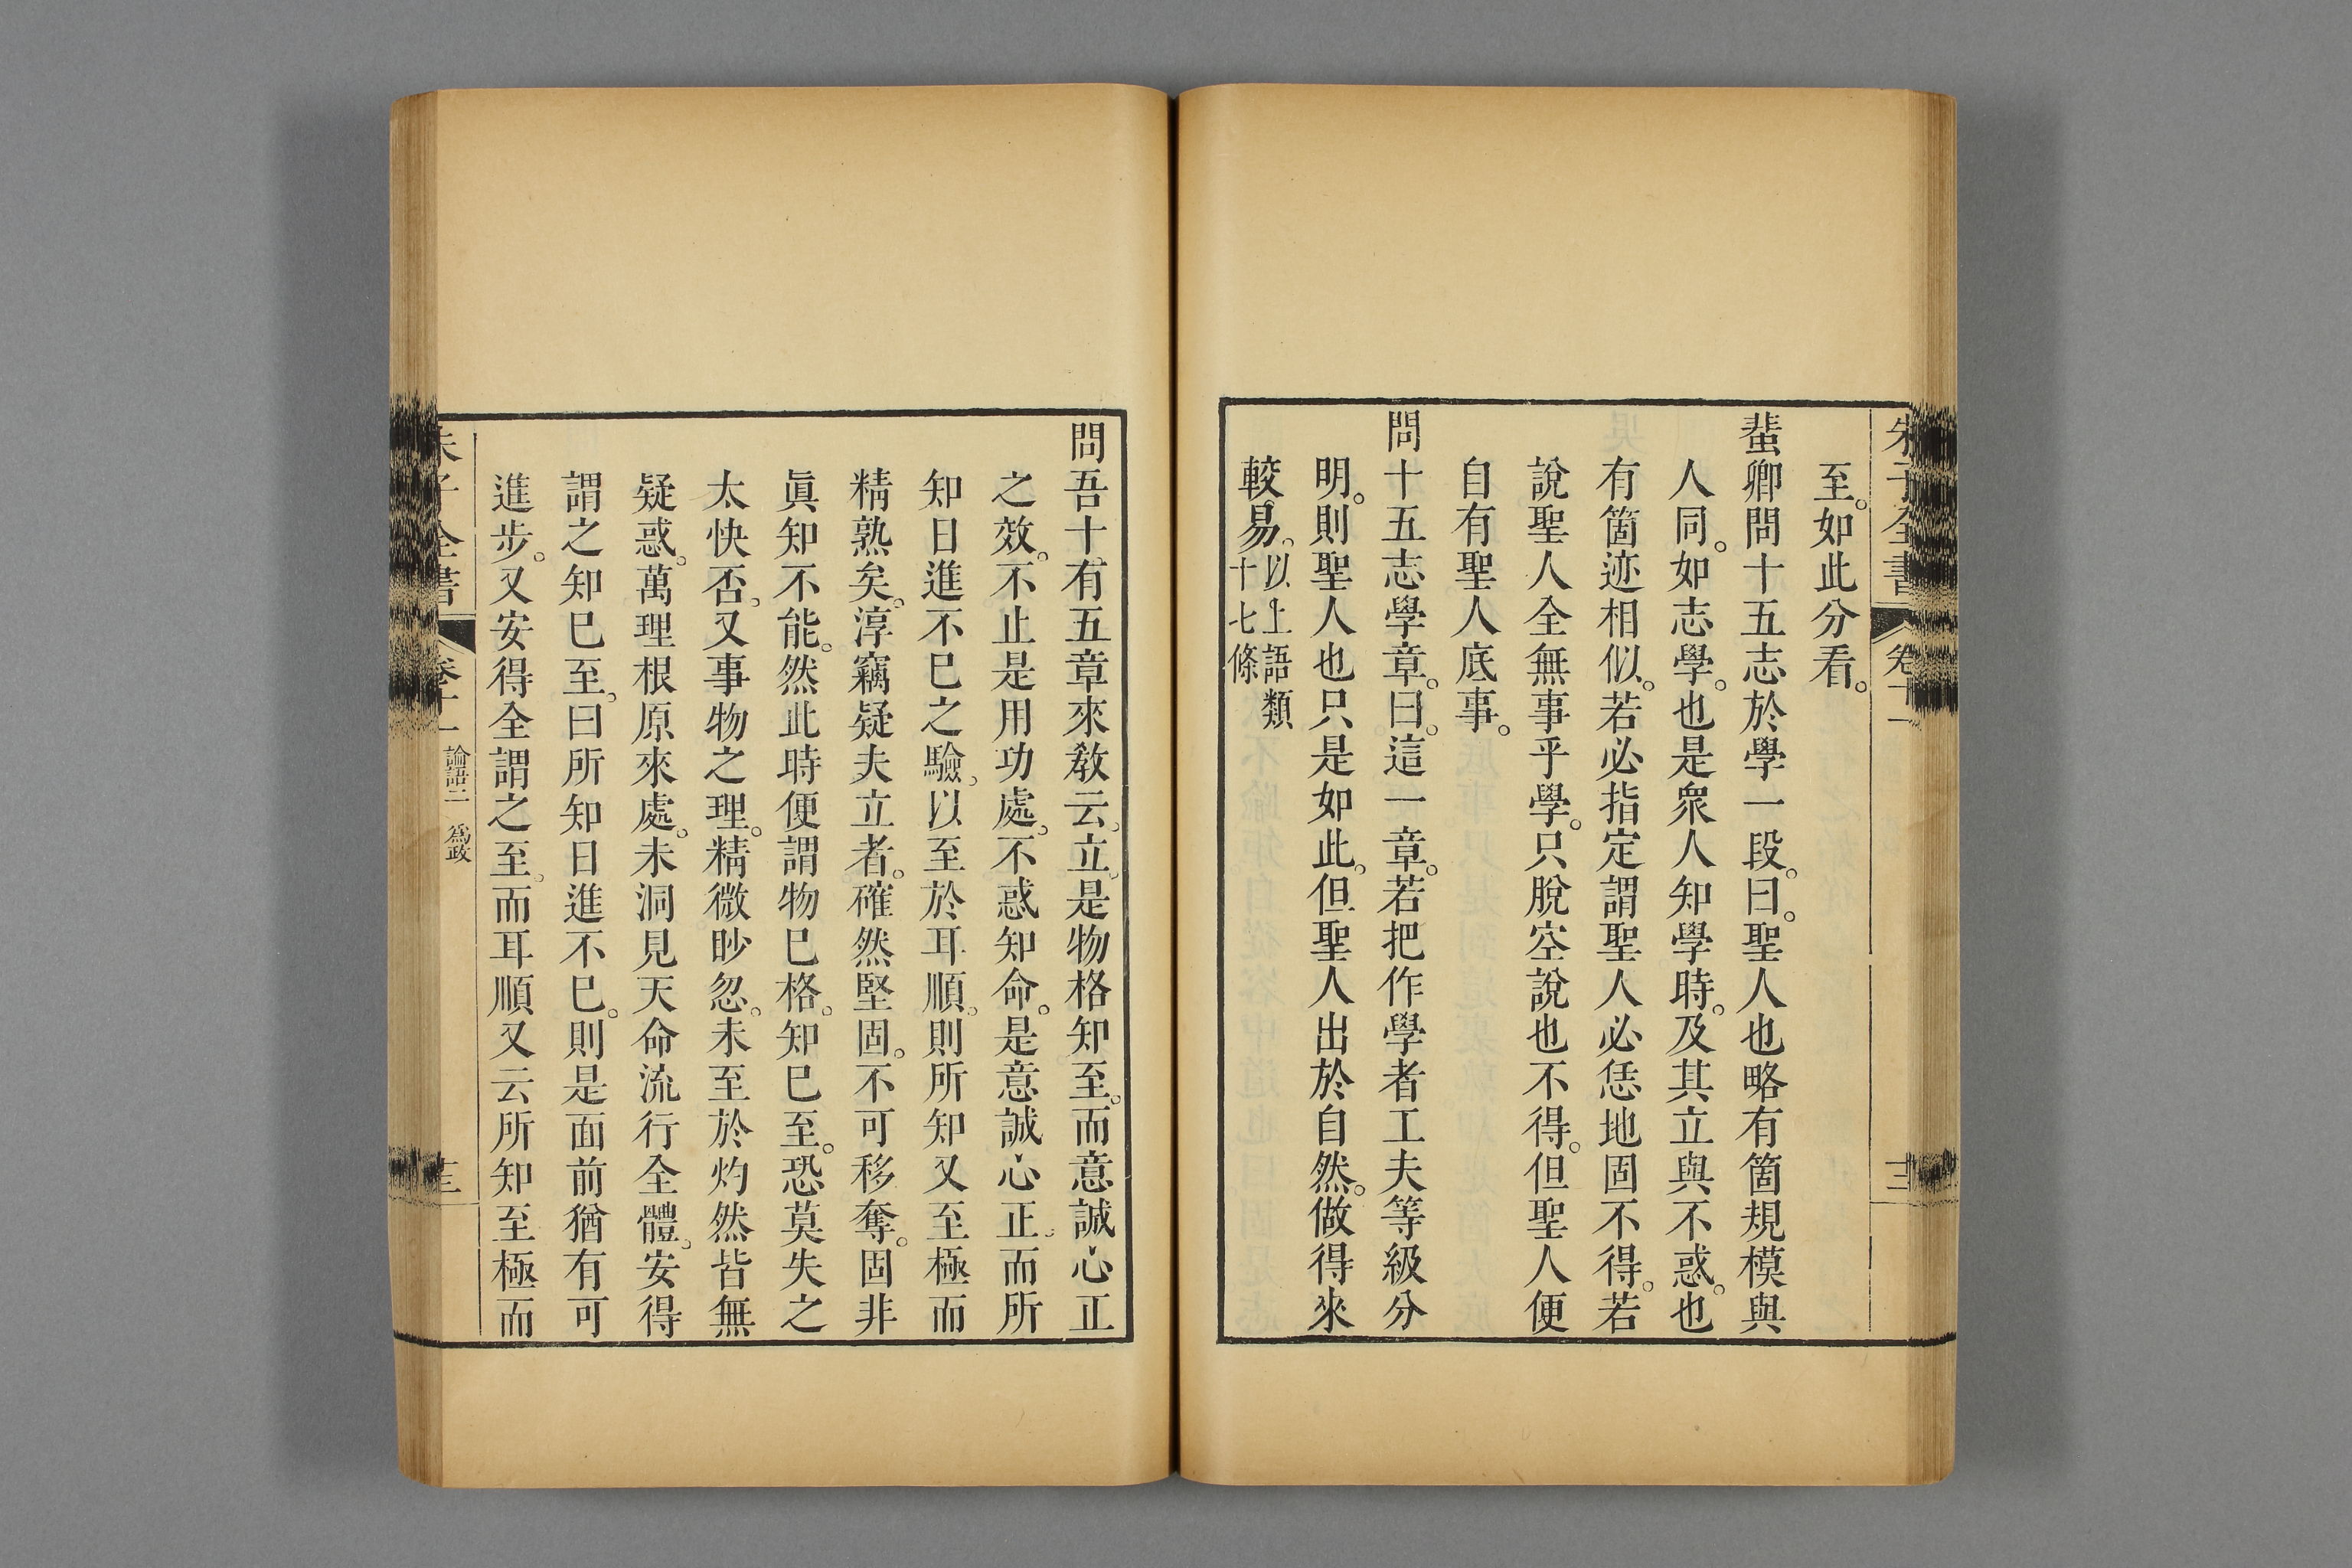 朱子全書 卷十一
至。如此分看。
蜚卿問十五志於學一段。曰。聖人也略有箇規模與
人同。如志學。也是衆人知學時。及其立與不惑。也
有箇迹相似。若必指定謂聖人必恁地固不得。若
說聖人全無事乎學。只脫空說也不得。但聖人便
自有聖人底事。
問十五志學章。曰。這一章。若把作學者工夫等級分
明。則聖人也只是如此。但聖人出於自然。做得來
較易。以上語類
十七條
問吾十有五章來敎云。立。是物格知至。而意誠心正
之效。不止是用功處。不惑知命。是意誠心正。而所
知日進不已之驗。以至於耳順。則所知又至極而
精熟矣。淳竊疑夫立者。確然堅固。不可移奪。固非
眞知不能。然此時便謂物已格。知已至。恐莫失之
太快否。又事物之理。精微眇忽。未至於灼然皆無
疑惑。萬理根原來處。未洞見天命流行全體。安得
謂之知已至。曰所知日進不已。則是面前猶有可
進步。又安得全謂之至。而耳順又云所知至極而
朱子全書 卷十一 論語二 爲政